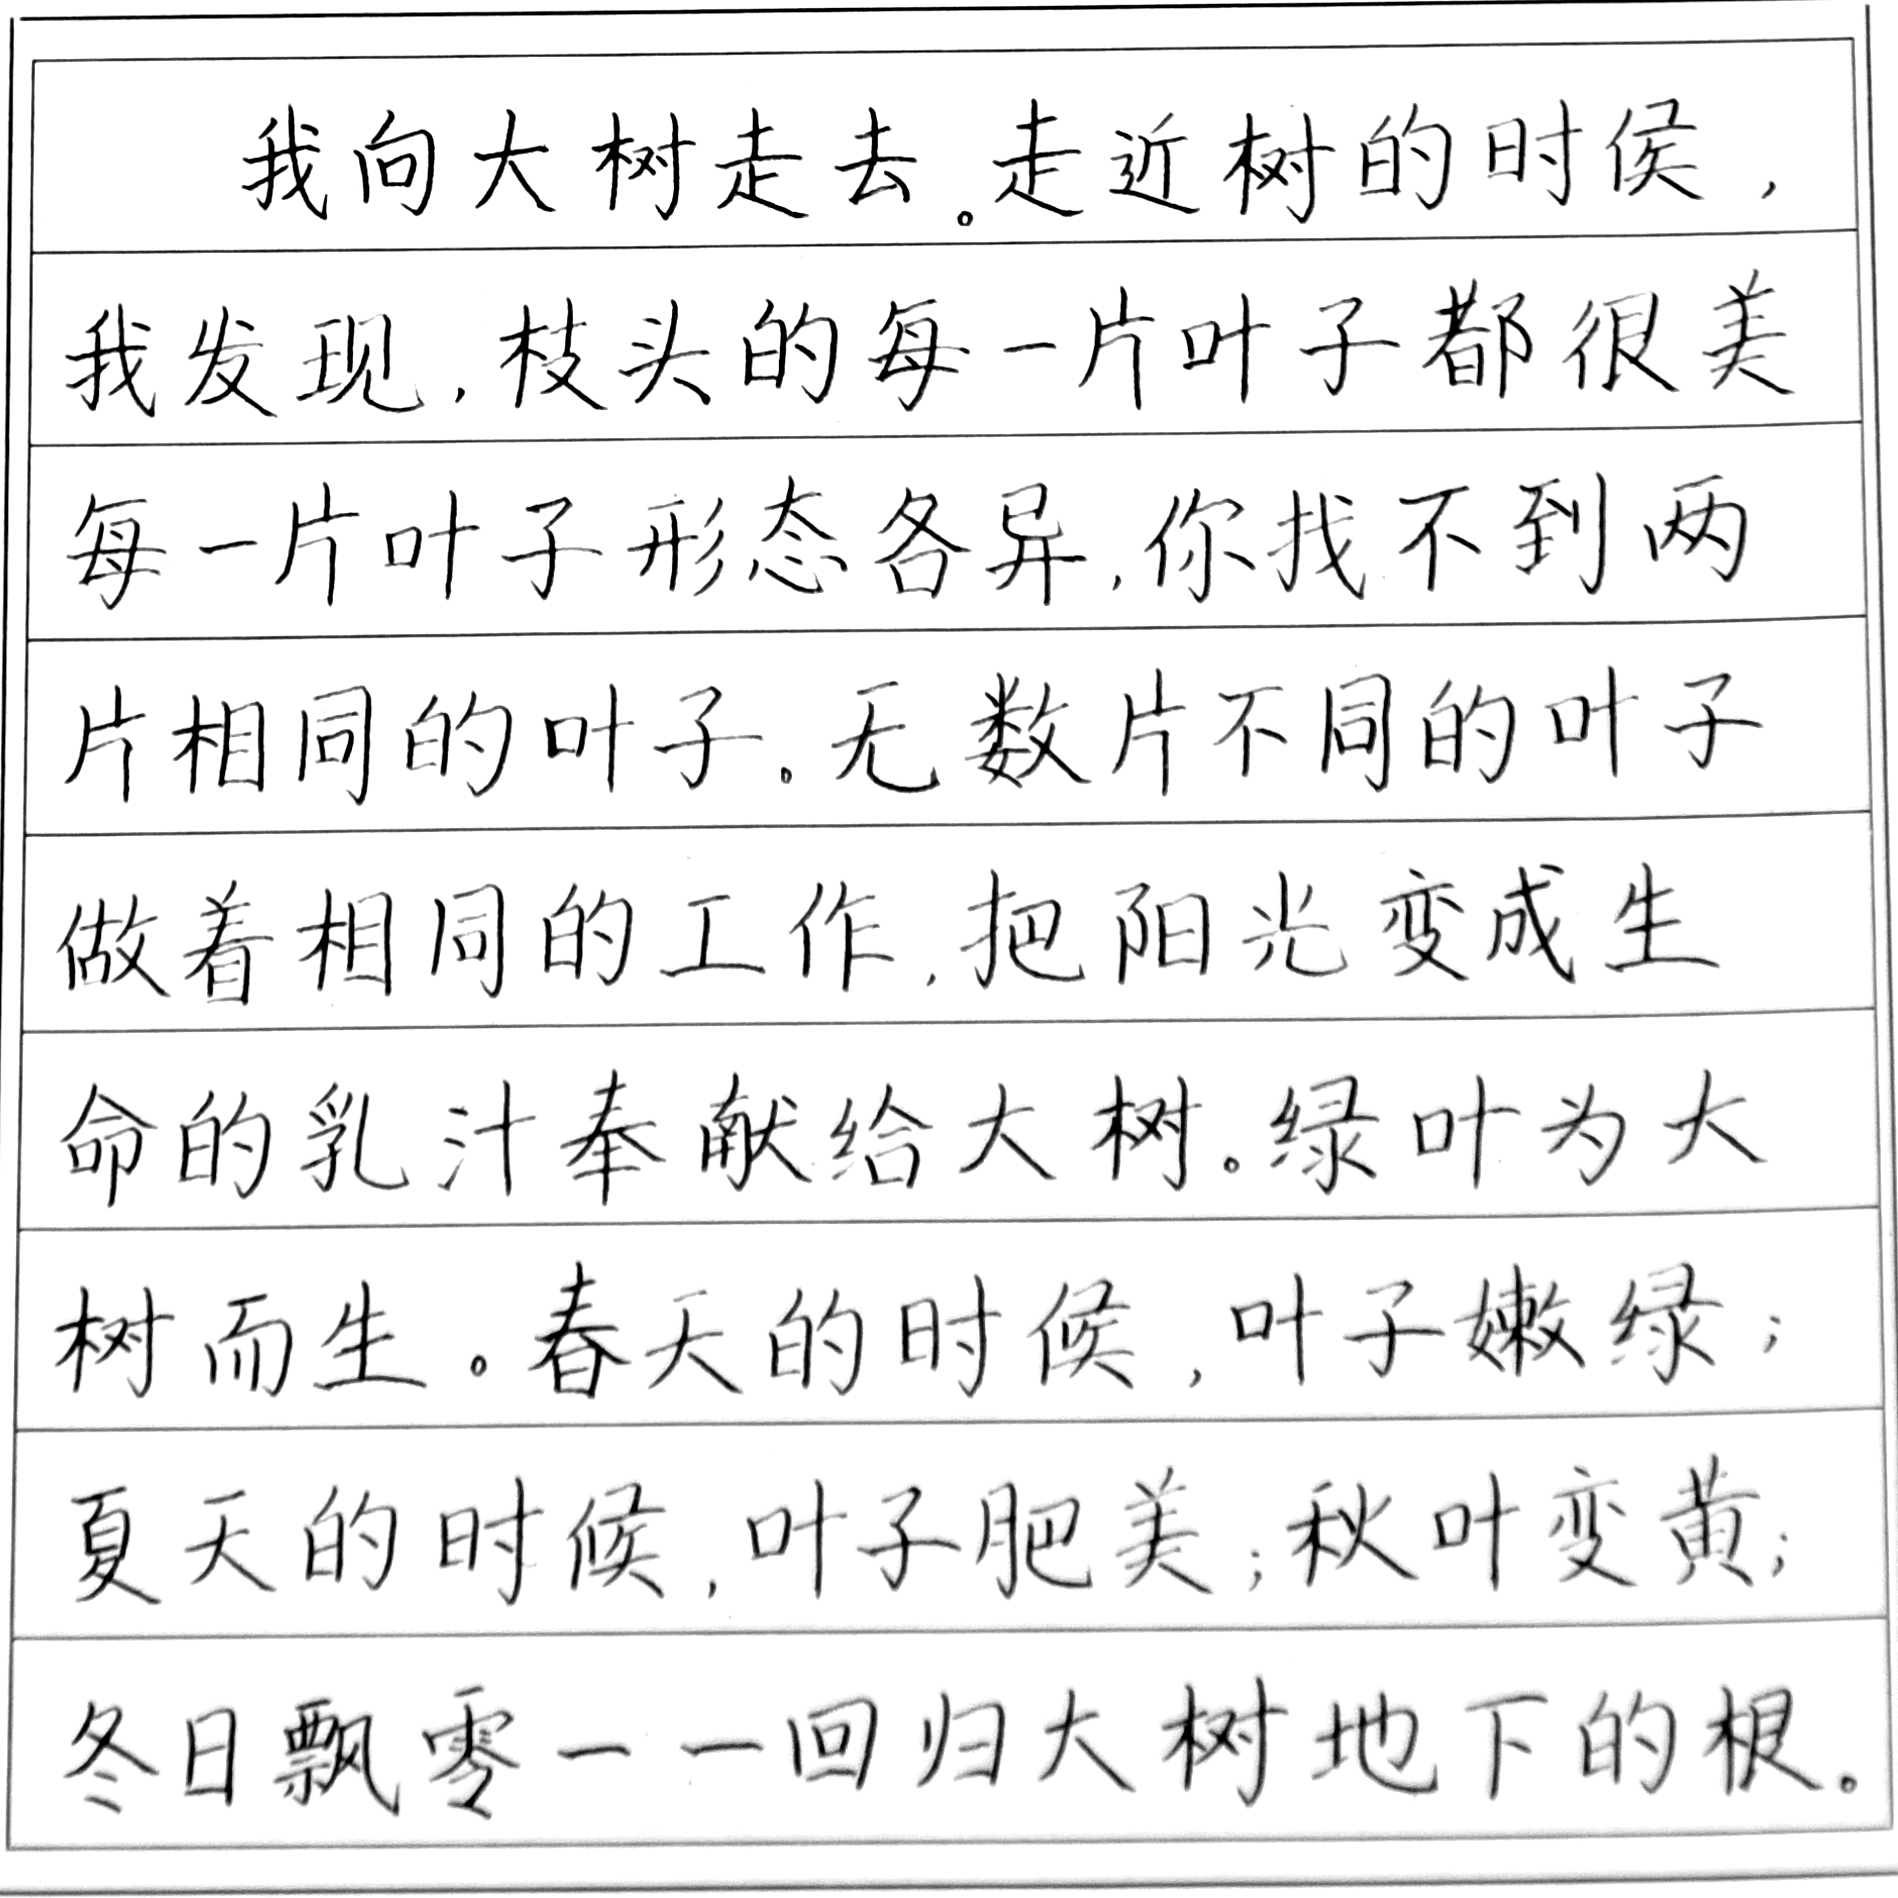 我向大树走去。走近树的时侯，
我发现，枝头的每一片叶子都很美
每一片叶子形态各异，你找不到两
片相同的叶子。无数片不同的叶子
做着相同的工作，把阳光变成生
命的乳汁奉献给大树。绿叶为大
树而生。春天的时候，叶子嫩绿；
夏天的时候，叶子肥美；秋叶变黄；
冬日飘零——回归大树地下的根。